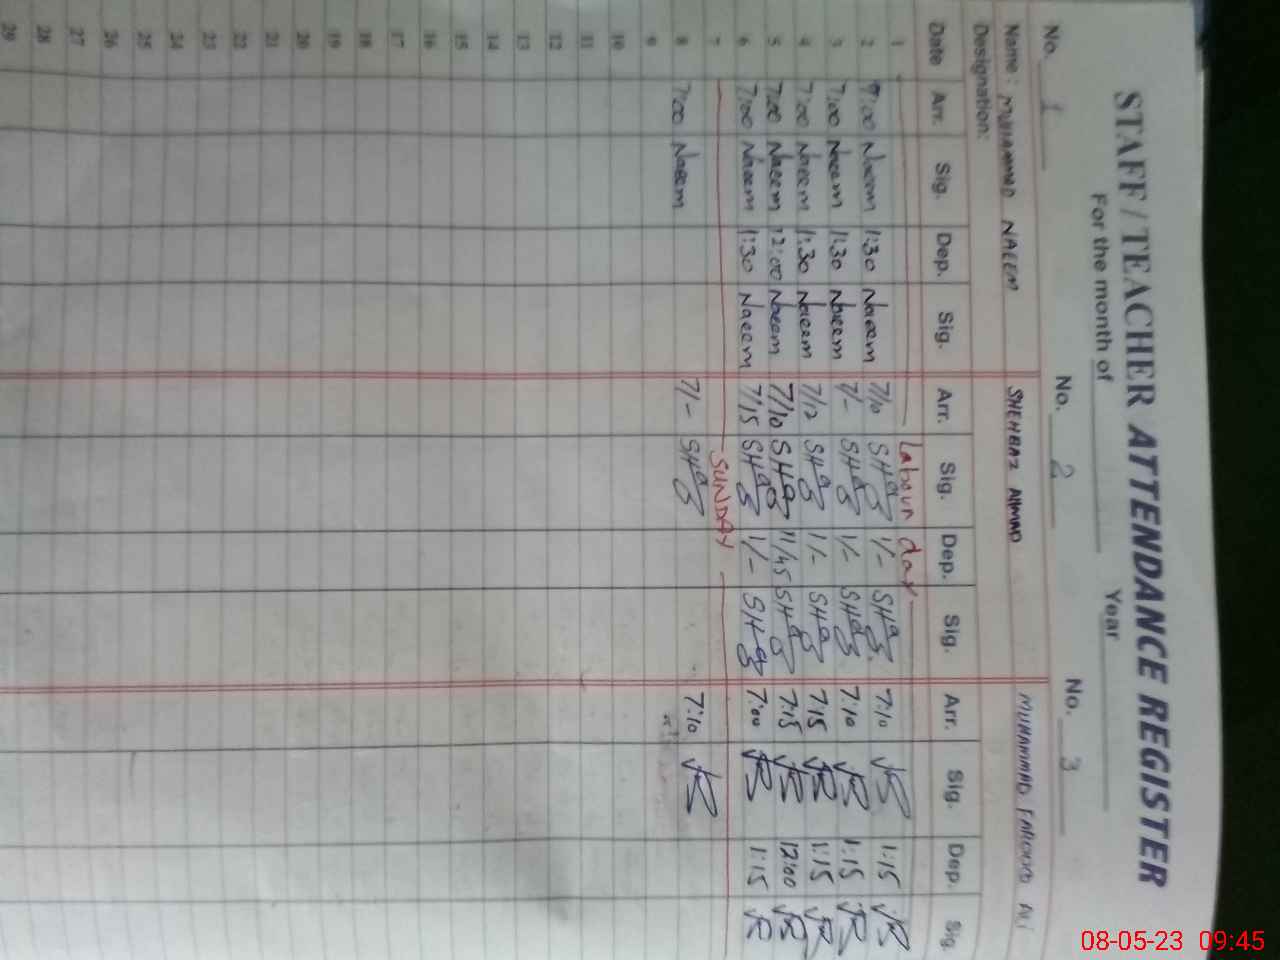 STAFF / TEACHER ATTENDANCE REGISTER
For the month of Year
No. 1 No. 2 No. 3
Name: MUHAMMAD NAEEM SHEHBAZ AHMAD MUHAMMAD FAROOQ ALI
Designation:
Date Arr. Sig. Dep. Sig. Arr. Sig. Dep. Sig. Arr. Sig. Dep. Sig.
1 Labour day
2 7:00 Naeem 1:30 Naeem 7/10 1/- 7:10 1:15
3 7:00 Naeem 1:30 Naeem 7/- 1/- 7:10 1:15
4 7:00 Naeem 1:30 Naeem 7/12 1/- 7:15 1:15
5 7:00 Naeem 12:00 Naeem 7/10 11/45 7:15 12:00
6 7:00 Naeem 1:30 Naeem 7:15 1/- 7:00 1:15
7 SUNDAY
8 7:00 Naeem 7/- 7:10
9
10
11
12
13
14
15
16
17
18
19
20
21
22
23
24
25
26
27
28
29
08-05-23 09:45